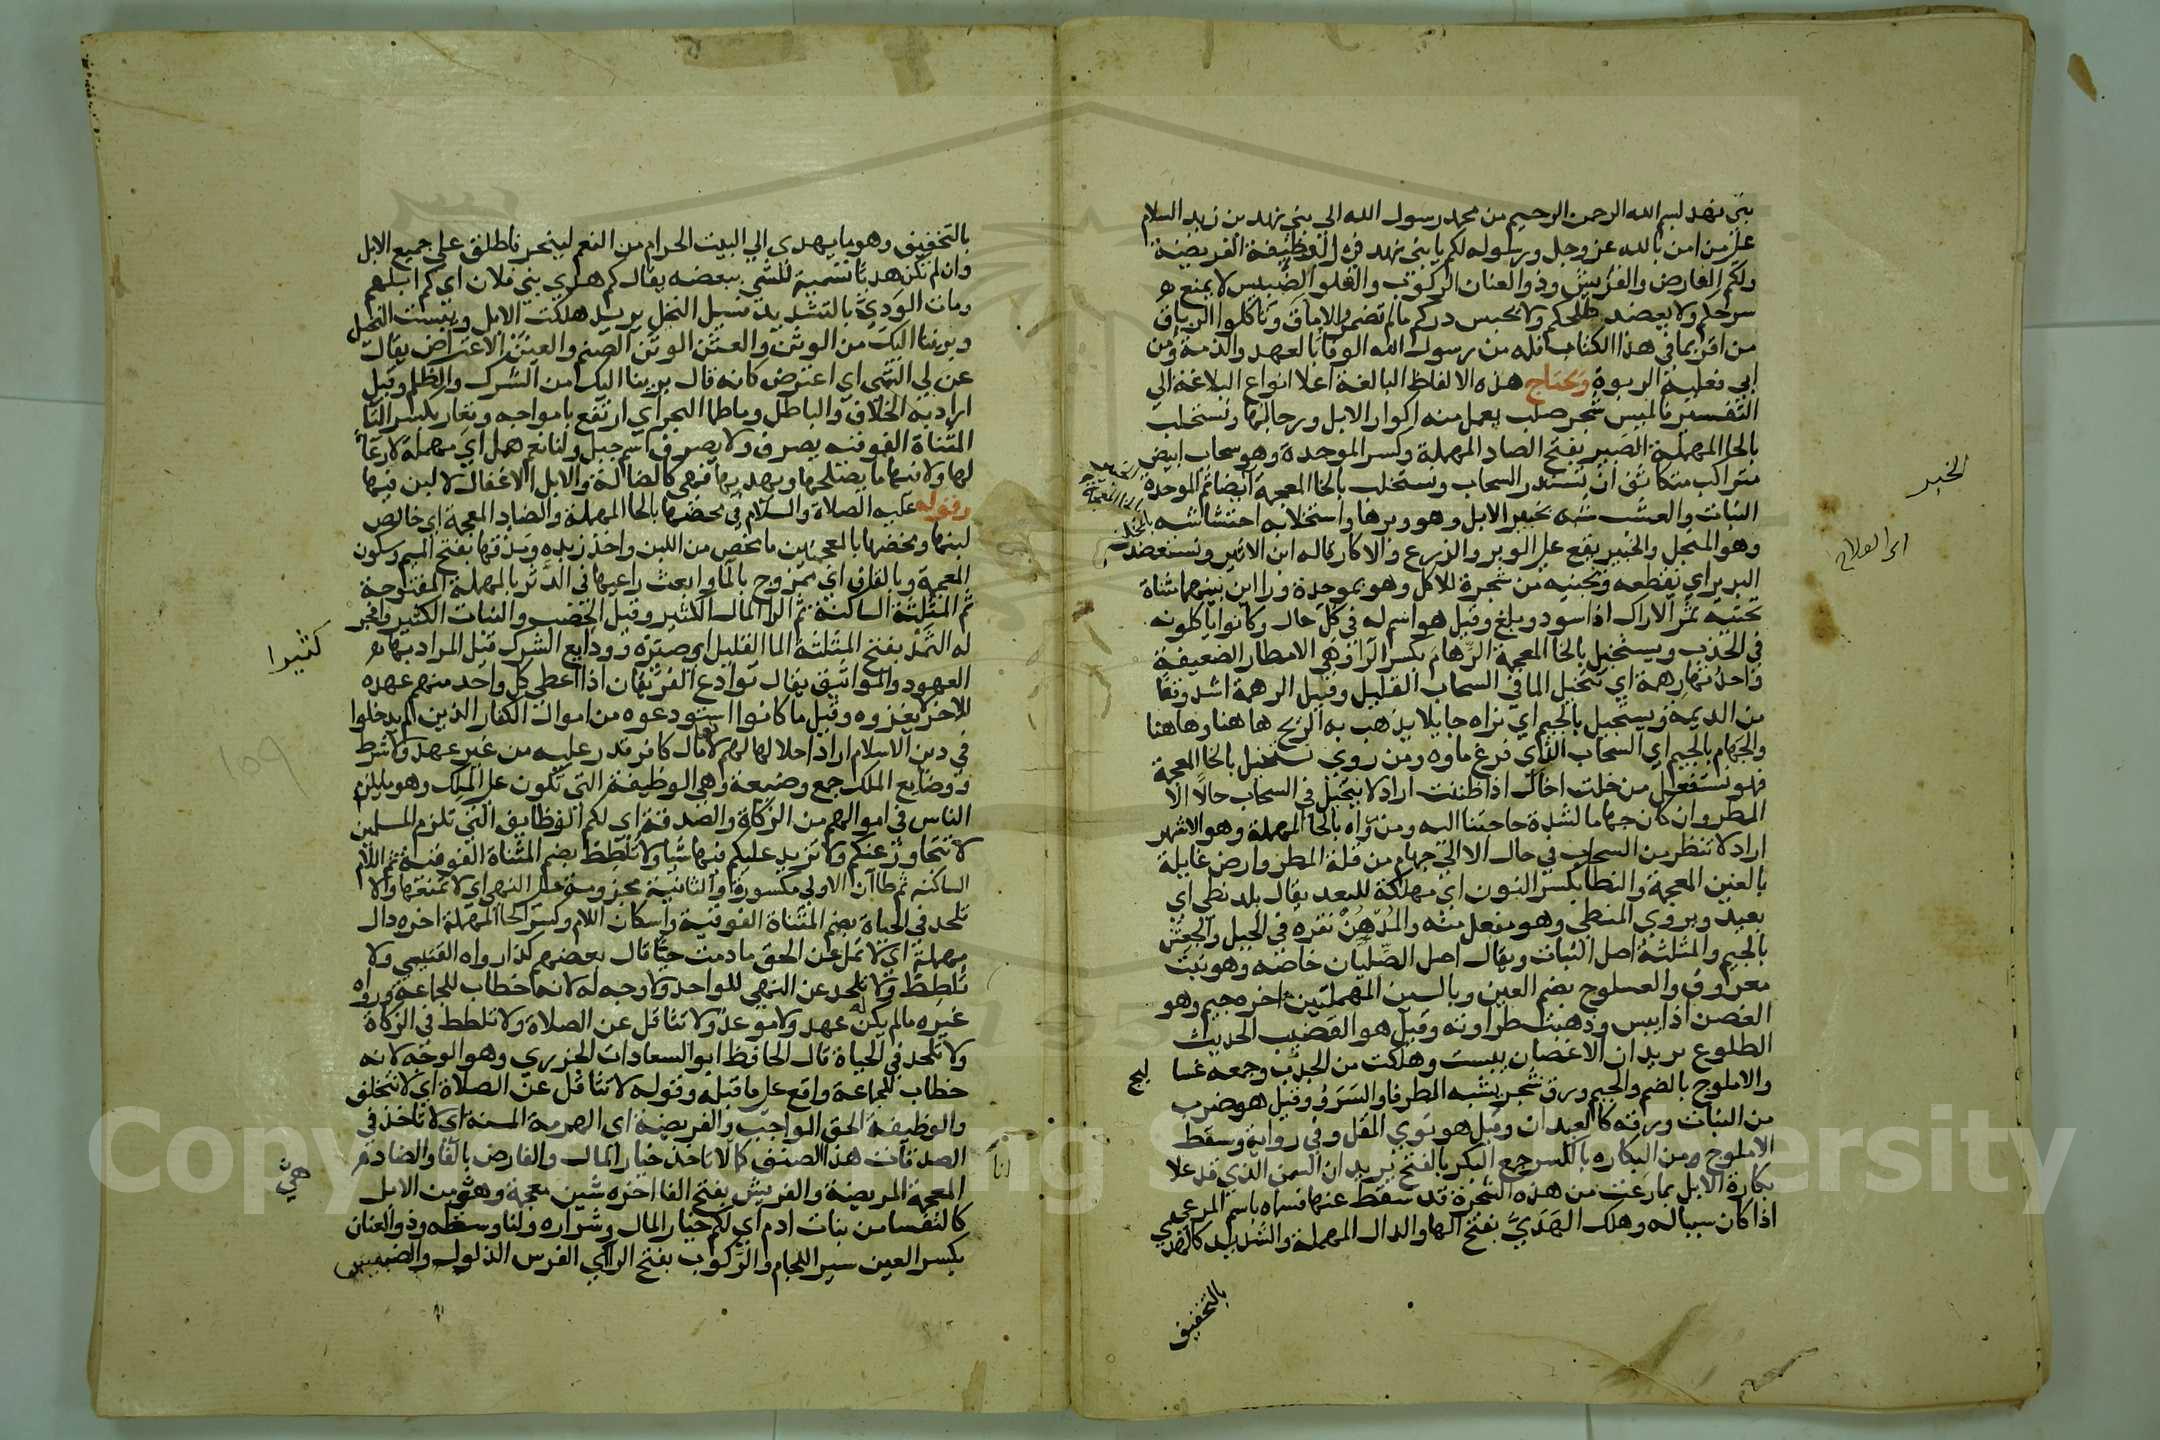 بني نهد بسم الله الرحمن الرحيم من محمد رسول الله الي بني نهد بن زيد السلام
علي من امن بالله عز وجل ورسوله لكم يا بني نهد في الوظيفة الفريضة
ولكم الفارض والفريش وذو العنان الركوب والفلو الضبيس لا يمنع
سرحكم ولا يعضد طلحكم ولا يحبس دركم ما لم تضمروا الاماق وتاكلوا الرباق
من اقر بما في هذا الكتاب فله من رسول الله الوفا بالعهد والذمة ومن
ابي فعليه الربوة وتحتاج هذه الالفاظ البالغة اعلا انواع البلاغة الي
التفسير فالميس شجر صلب يعمل منه اكوار الابل ورحالها ونستحلب
بالحا المهملة الصبير بفتح الصاد المهملة وكسر الموحدة وهو سحاب ابيض
متراكب متكاثف اي نستدر السحاب ونستخلب بالخا المعجمة ايضا ثم الموحدة
النبات والعشب شبه بخبير الابل وهو وبرها واستخلابه احتشاشه بالمخلب
وهو المنجل والخبير يقع علي الوبر والزرع والاكار قاله ابن الاثير ونستعضد
البرير اي نقطعه ونجنيه من شجره للاكل وهو بموحدة ورا اين بينهما مثناة
تحتية ثمر الاراك اذا اسود وبلغ وقيل هو اسم له في كل حال وكانوا ياكلونه
في الجدب ويستخيل بالخا المعجمة الرهام بكسر الرا وهي الامطار الضعيفة
واحدتها رهمة اي نتخيل الما في السحاب القليل وقيل الرهمة اشد وقعا
من الديمة ويستجيل بالجيم اي نراه جايلا يذهب به الريح هاهنا وهاهنا
والجهام بالجيم اي السحاب الذي فرغ ماوه ومن روي نستخيل بالخا المعجمة
فهو نستفعل من خلت اخال اذا ظننت اراد لا نتخيل في السحاب حالا الا
المطر وان كان جهاما لشدة حاجتنا اليه ومن رواه بالحا المهملة وهو الاشهر
اراد لا ننظر من السحاب في حال الا الي جهام من قلة المطر وارض غايلة
بالغين المعجمة والنطا بكسر النون اي مهلكة للبعد يقال بلد نطي اي
بعيد ويروي المنطي وهو مفعل منه والمدهن نقره في الجبل والجعثن
بالجيم والمثلثة اصل النبات ويقال اصل الصليان خاصه وهو نبت
معروف والعسلوج بضم العين وبالسين المهملتين اخره جيم وهو
الغصن اذا يبس وذهبت طراوته وقيل هو القضيب الحديث
الطلوع يريد ان الاغصان يبست وهلكت من الجدب وجمعه عسا
ليج
والاملوج بالضم والجيم ورق شجر يشبه الطرفا والسرو وقيل هو ضرب
من النبات ورقه كالعيدان وقيل هو نوي المقل وفي رواية وسقط
الاملوج من البكاره بالكسر جمع البكر بالفتح يريد ان السمن الذي قد علا
بكارة الابل بما رعت من هذه الشجرة قد سقط عنها فسماه باسم المرعي
اذا كان سببا له وهلك الهدي بفتح الها والدال المهملة والتشديد كالهدي
بالتخفيف
الخبير
بالتخفيف وهو ما يهدي الي البيت الحرام من النعم لينحر فاطلق علي جميع الابل
وان لم تكن هديا تسمية للشي ببعضه يقال كم هدي بني فلان اي كم ابلهم
ومات الودي بالتشديد فسيل النخل يريد هلكت الابل ويبست النخل
وبرينا اليك من الوثن والعنن الوثن الصنم والعنن الاعتراض يقال
عن لي الشي اي اعترض كانه قال برينا اليك من الشرك والظلم وقيل
اراد به الخلاف والباطل وما طما البحر اي ارتفع بامواجه وتعار بكسر التا
المثناة الفوقية يصرف ولا يصرف اسم جبل ولنا نعم همل اي مهملة لا رعا
لها ولا فيها ما يصلحها ويهديها فهي كالضالة والابل الاغفال لا لبن فيها
وقوله عليه الصلاة والسلام في محضها بالحا المهملة والضاد المعجمة اي خالص
لبنها ومخضها بالمعجمتين ما مخض من اللبن واخذ زبده ومذقها بفتح الميم وسكون
المعجمة وبالقاف اي ممزوج بالما وابعث راعيها في الدثر بالمهملة المفتوحة
ثم المثلثة الساكنة ثم الرا المال الكثير وقيل الخصب والنبات الكثير وافجر
له الثمد بفتح المثلثة الما القليل اي صيره
كثيرا
وودايع الشرك قيل المراد بها
العهود والمواثيق يقال توادع الفريقان اذا اعطي كل واحد منهم عهده
للاخر لا يغزوه وقيل ما كانوا استودعوه من اموال الكفار الذين لم يدخلوا
في دين الاسلام اراد احلالها لهم لانها مال كافر قدر عليه من غير عهد ولا شرط
ووضايع الملك جمع وضيعة وهي الوظيفة التي تكون علي الملك وهو ما يلزم
الناس في اموالهم من الزكاة والصدقة اي لكم الوظايف التي تلزم المسلمين
لا نتجاوز عنكم ولا نزيد عليكم فيها شيا ولا تلطط بضم المثناة الفوقية ثم اللام
الساكنه ثم طاآن الاولي مكسورة والثانية مجزومة علي النهي اي لا تمنعها ولا
تلحد في الحياة بضم المثناة الفوقية واسكان اللام وكسر الحا المهملة اخره دال
مهملة اي لا تمل عن الحق ما دمت حيا قال بعضهم كذا رواه القتيبي ولا
تلطط ولا تلحد عن النهي للواحد ولا وجه له لانه خطاب للجماعة ورواه
غيره ما لم يكن عهد ولا موعد ولا تثاقل عن الصلاة ولا تلطط في الزكاة
ولا تلحد في الحياة قال الحافظ ابو السعادات الجزري وهو الوجه لانه
خطاب للجماعة واقع علي ما قبله وقوله لا تتثاقل عن الصلاة اي لا تتخلف
والوظيفة الحق الواجب والفريضة اي الهرمة المسنة اي لا تاخذ في
الصدقات هذا الصنف كما لا ناخذ خيار المال والفارض بالفا والضاد
المعجمة المريضة والفريش بفتح الفا اخره شين معجمة وهي من الابل
كالنفسا من بنات ادم اي لكم خيار المال وشراره ولنا وسطه وذو العنان
بكسر العين سير اللجام والركوب بفتح الراي الفرس الذلول والضبيس
هي
159
Copy
King Saud University